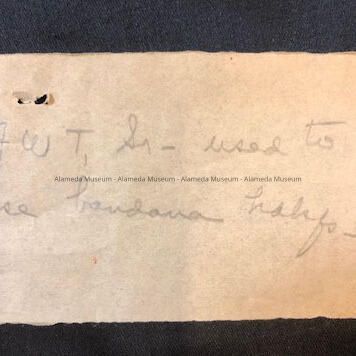 FWT, Sr - used to
Alameda Museum - Alameda Museum - Alameda Museum - Alameda Museum
use bandana hdkfs -